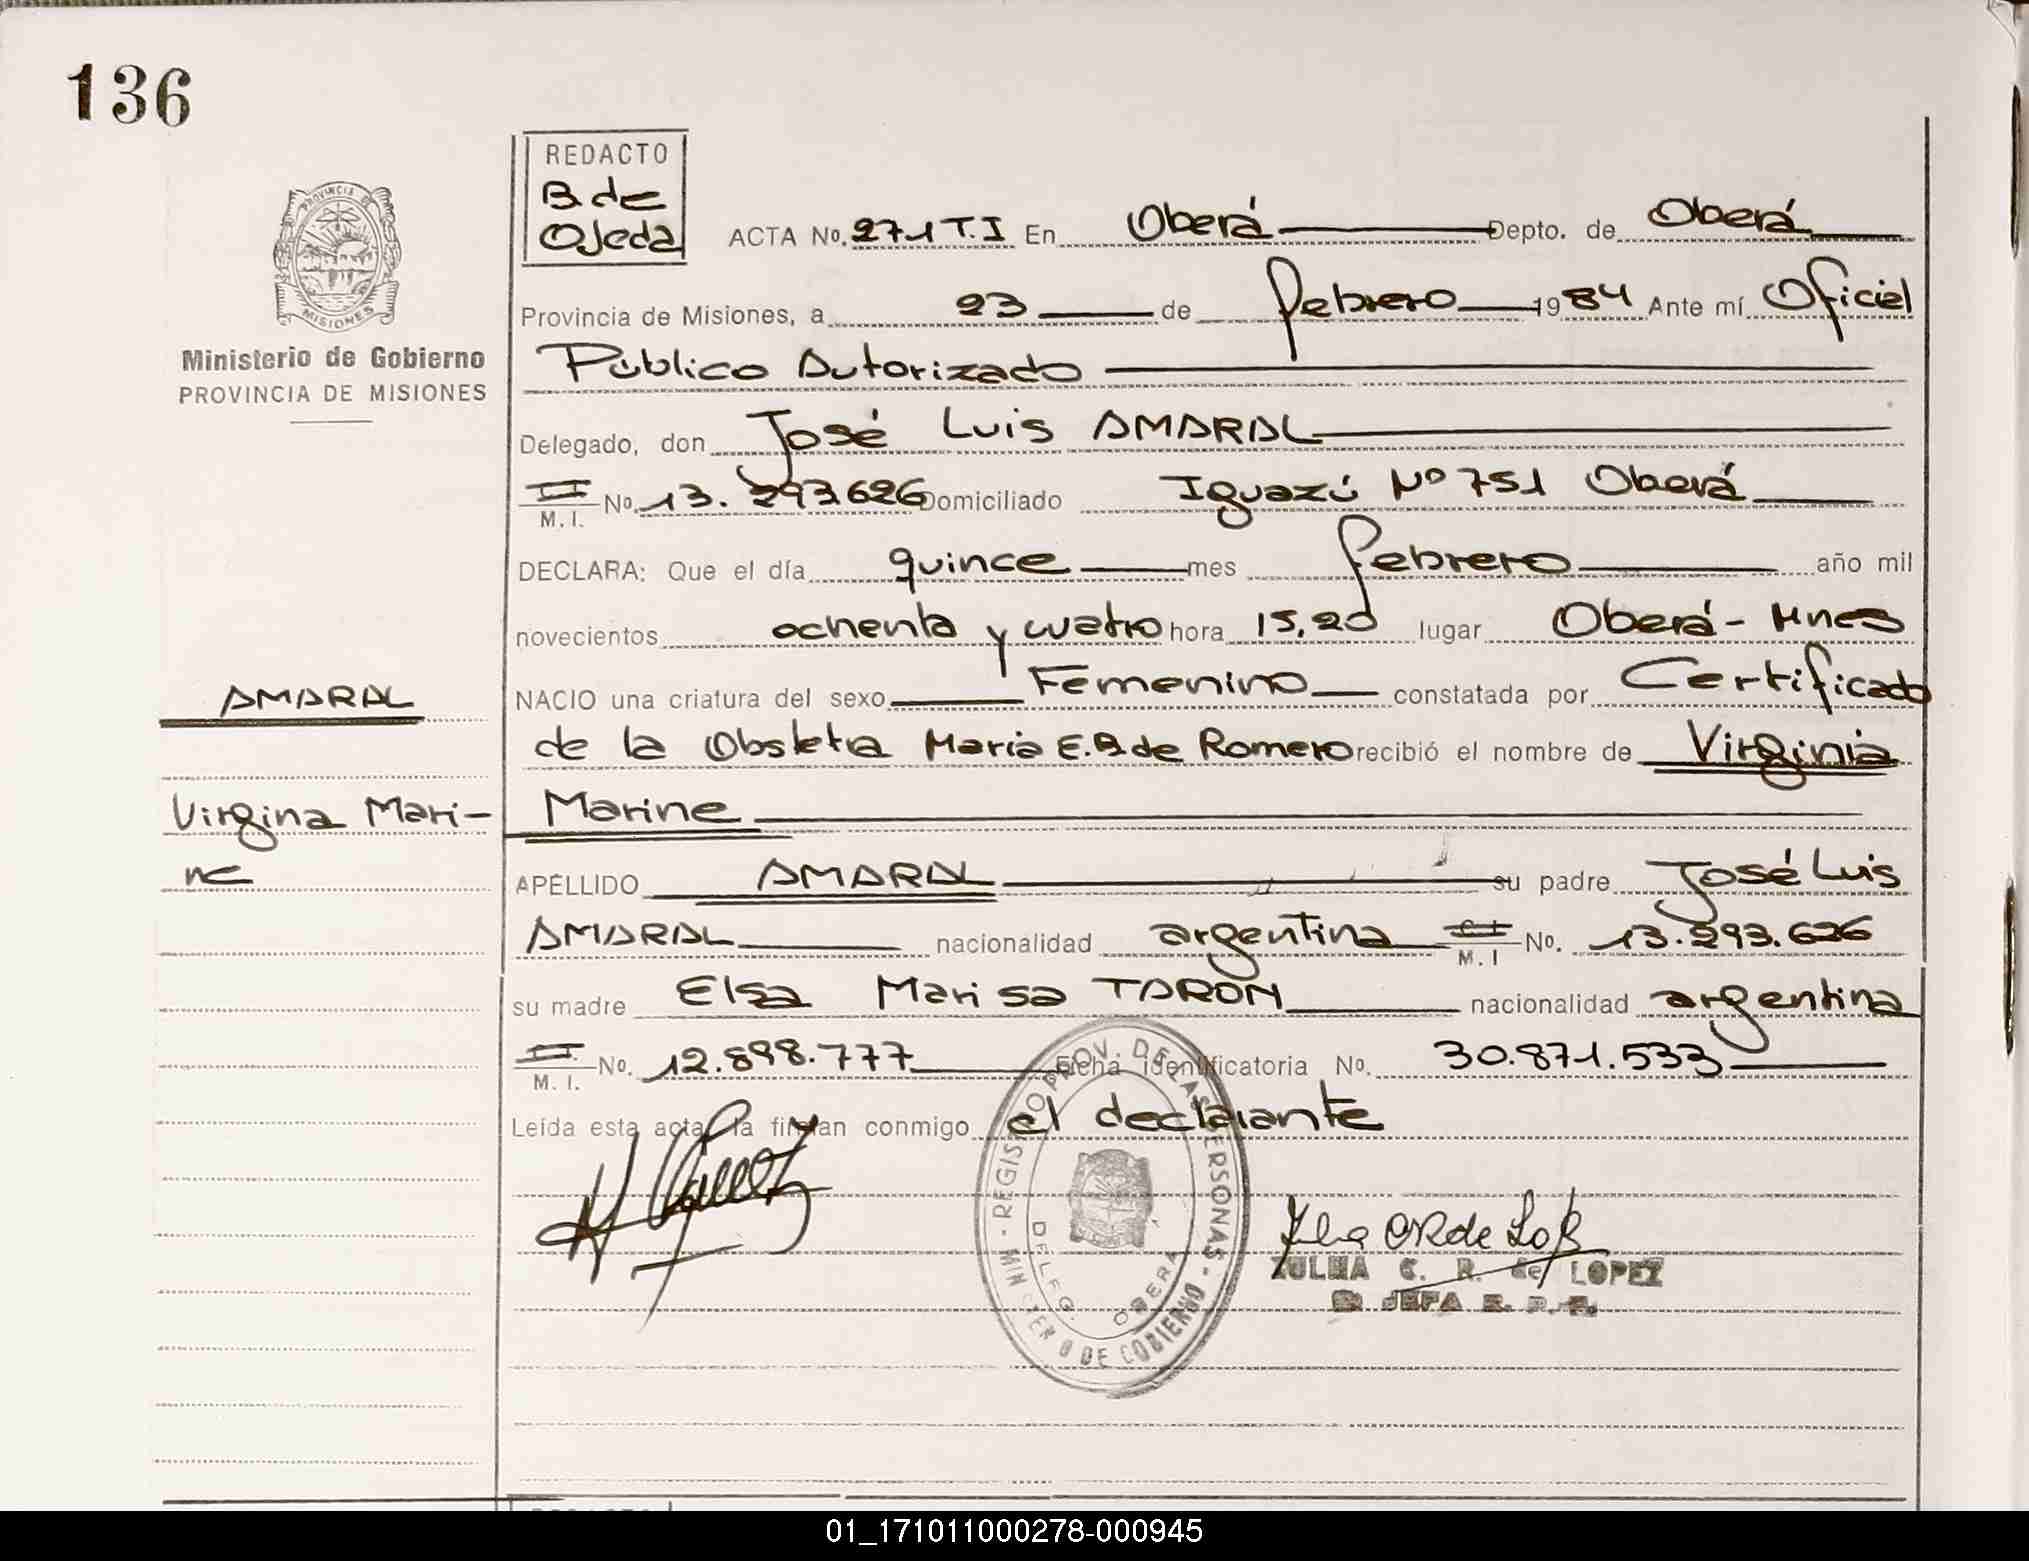 136
REDACTO
B. de
Ojeda
ACTA No. 271 T.I En Oberá Depto. de Oberá
PROVINCIA DE
MISIONES
Provincia de Misiones, a 23 de febrero 1984 Ante mí Oficial
Ministerio de Gobierno
PROVINCIA DE MISIONES
Público Autorizado
Delegado, don José Luis AMARAL
M. I. No. 13.293.626 Domiciliado Iguazú Nº 751 Oberá
DECLARA: Que el día quince mes febrero año mil
novecientos ochenta y cuatro hora 15,20 lugar Oberá - Mnes
AMARAL
NACIO una criatura del sexo Femenino constatada por Certificado
de la Obstetra María E. B. de Romero recibió el nombre de Virginia
Virgina Mari-
ne
Marine
APELLIDO AMARAL su padre José Luis
AMARAL nacionalidad argentina M. I No. 13.293.626
su madre Elsa Marisa TARON nacionalidad argentina
M. I. No. 12.898.777 Ficha identificatoria No. 30.871.533
Leída esta acta la firman conmigo el declarante
REGISTRO PROV. DE LAS PERSONAS - MINISTERIO DE GOBIERNO -
DELEG. OBERA
ZULMA C. R. de LOPEZ
JEFA
01_171011000278-000945